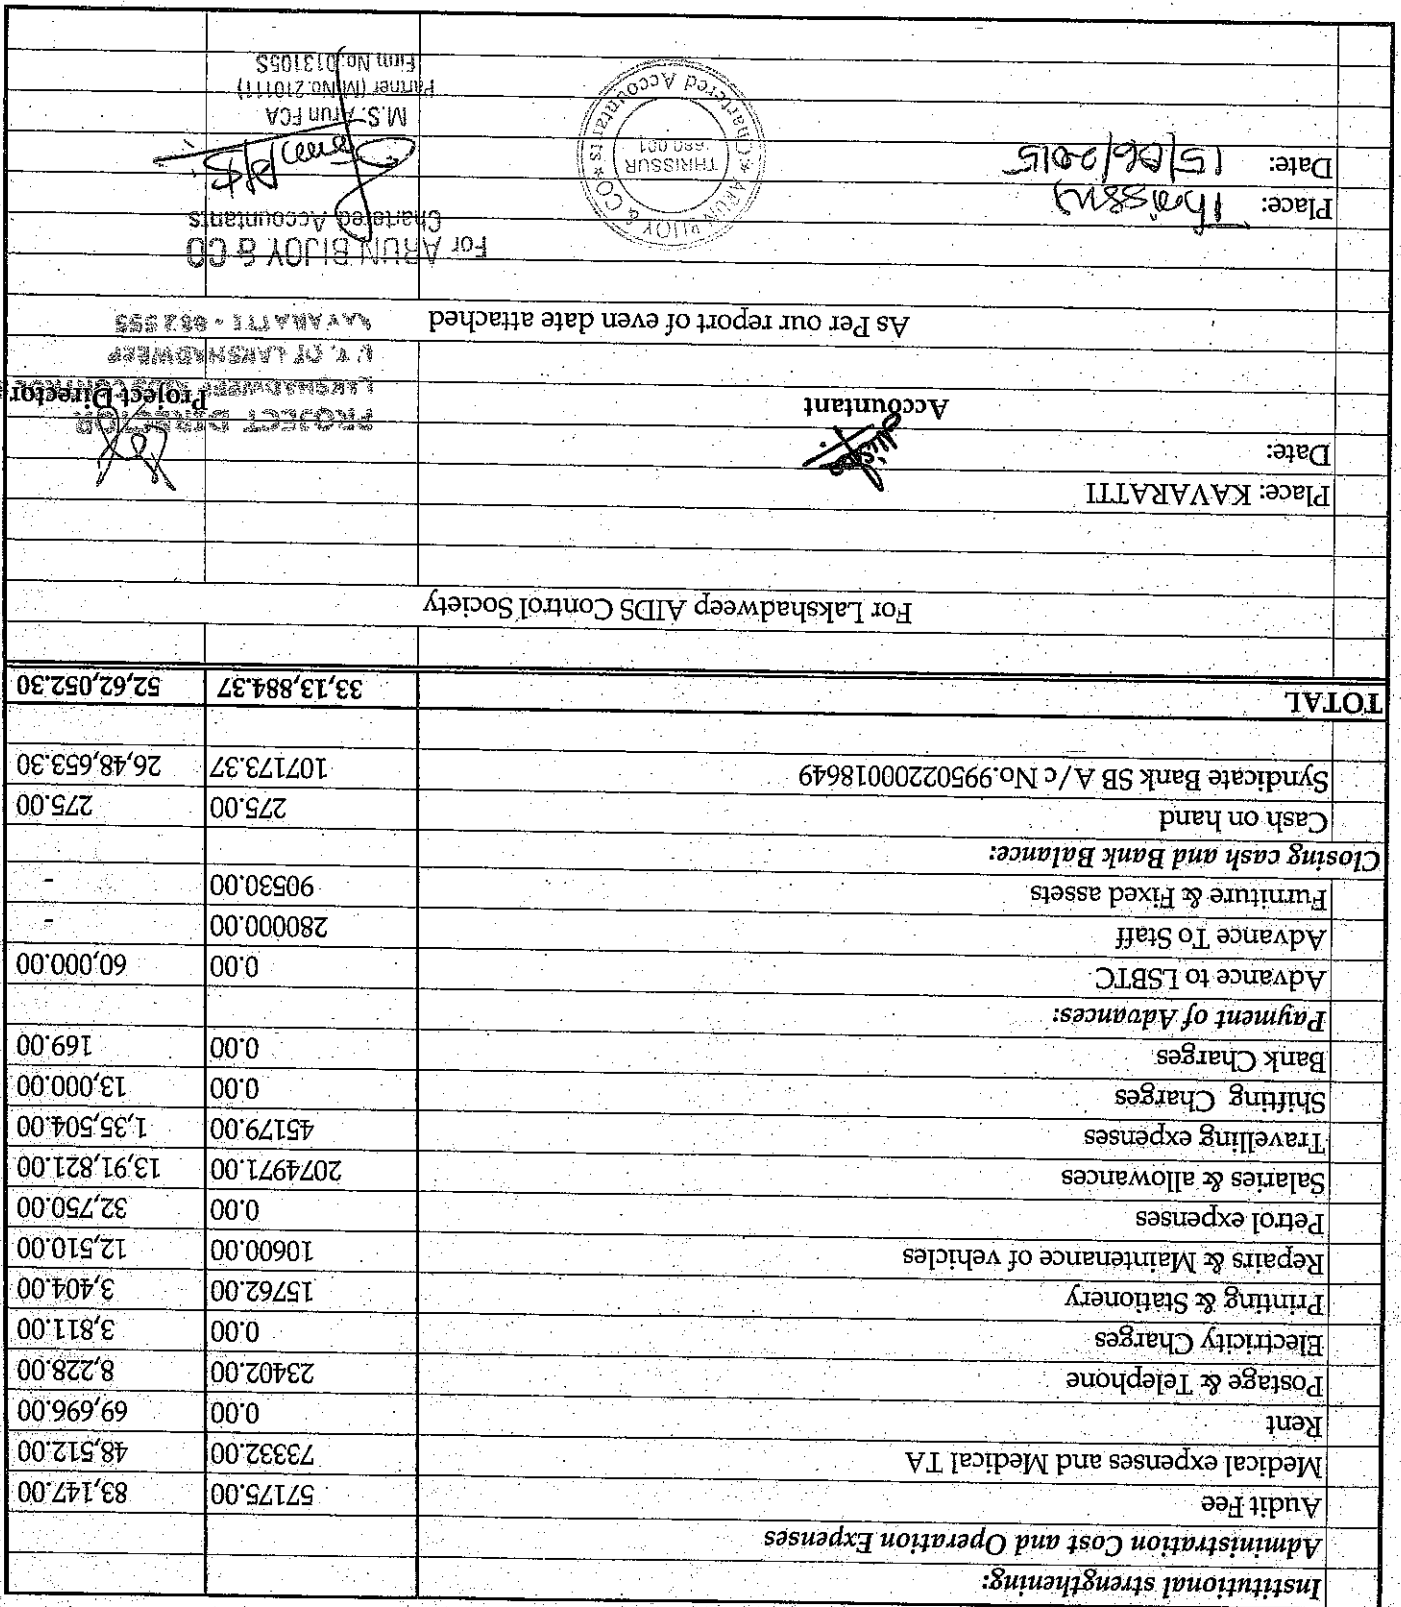 Institutional strengthening:
Administration Cost and Operation Expenses
Audit Fee 57175.00 83,147.00
Medical expenses and Medical TA 73332.00 48,512.00
Rent 0.00 69,696.00
Postage & Telephone 23402.00 8,228.00
Electricity Charges 0.00 3,811.00
Printing & Stationery 15762.00 3,404.00
Repairs & Maintenance of vehicles 10600.00 12,510.00
Petrol expenses 0.00 32,750.00
Salaries & allowances 2074971.00 13,91,821.00
Travelling expenses 45179.00 1,35,504.00
Shifting Charges 0.00 13,000.00
Bank Charges 0.00 169.00
Payment of Advances:
Advance to LSBTC 0.00 60,000.00
Advance To Staff 280000.00 -
Furniture & Fixed assets 90530.00 -
Closing cash and Bank Balance:
Cash on hand 275.00 275.00
Syndicate Bank SB A/c No.99502200018649 107173.37 26,48,653.30
TOTAL 33,13,884.37 52,62,052.30
For Lakshadweep AIDS Control Society
Place: KAVARATTI
Date:
Accountant Project Director
PROJECT DIRECTOR
LAKSHADWEEP AIDS CONTROL
U.T. OF LAKSHADWEEP
KAVARATTI - 682555
As Per our report of even date attached
For ARUN BIJOY & CO
Chartered Accountants
Place: Thrissur
Date: 15/06/2015
ARUN BIJOY & CO
Chartered Accountants
THRISSUR
680 001
M.S. Arun FCA
Partner (M.No.210111)
Firm No.013105S